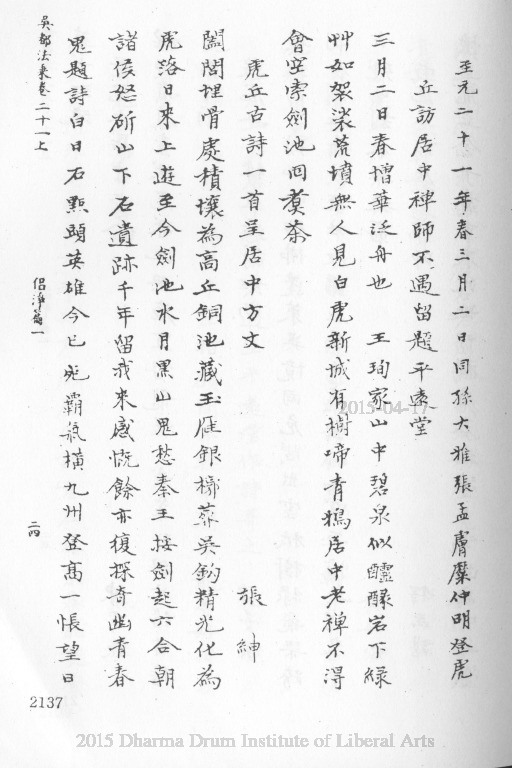 至元二十一年春三月二日同孫大雅張孟膚糜仲明登虎
丘訪居中禪師不遇留題平遠堂
三月二日春增華泛舟也 王珣家山中碧泉似醽醁岩下綠
艸如袈裟荒墳無人見白虎新城有樹啼青鴉居中老禪不得
會空索劍池回煑茶
虎丘古詩一首呈居中方丈 張紳
闔閭埋骨處積壤為高丘銅池藏玉雁銀槨葬吳鈎精光化為
虎落日來上遊至今劍池水月黑山鬼愁秦王按劍起六合朝
諸侯怒斫山下石遺跡千年留我來感慨餘亦復探奇幽青春
鬼題詩白日石點頭英雄今已死霸氣橫九州登高一悵望日
吳都法乘卷二十一上 侶淨篇一 二四
2137
2015-04-17
2015 Dharma Drum Institute of Liberal Arts